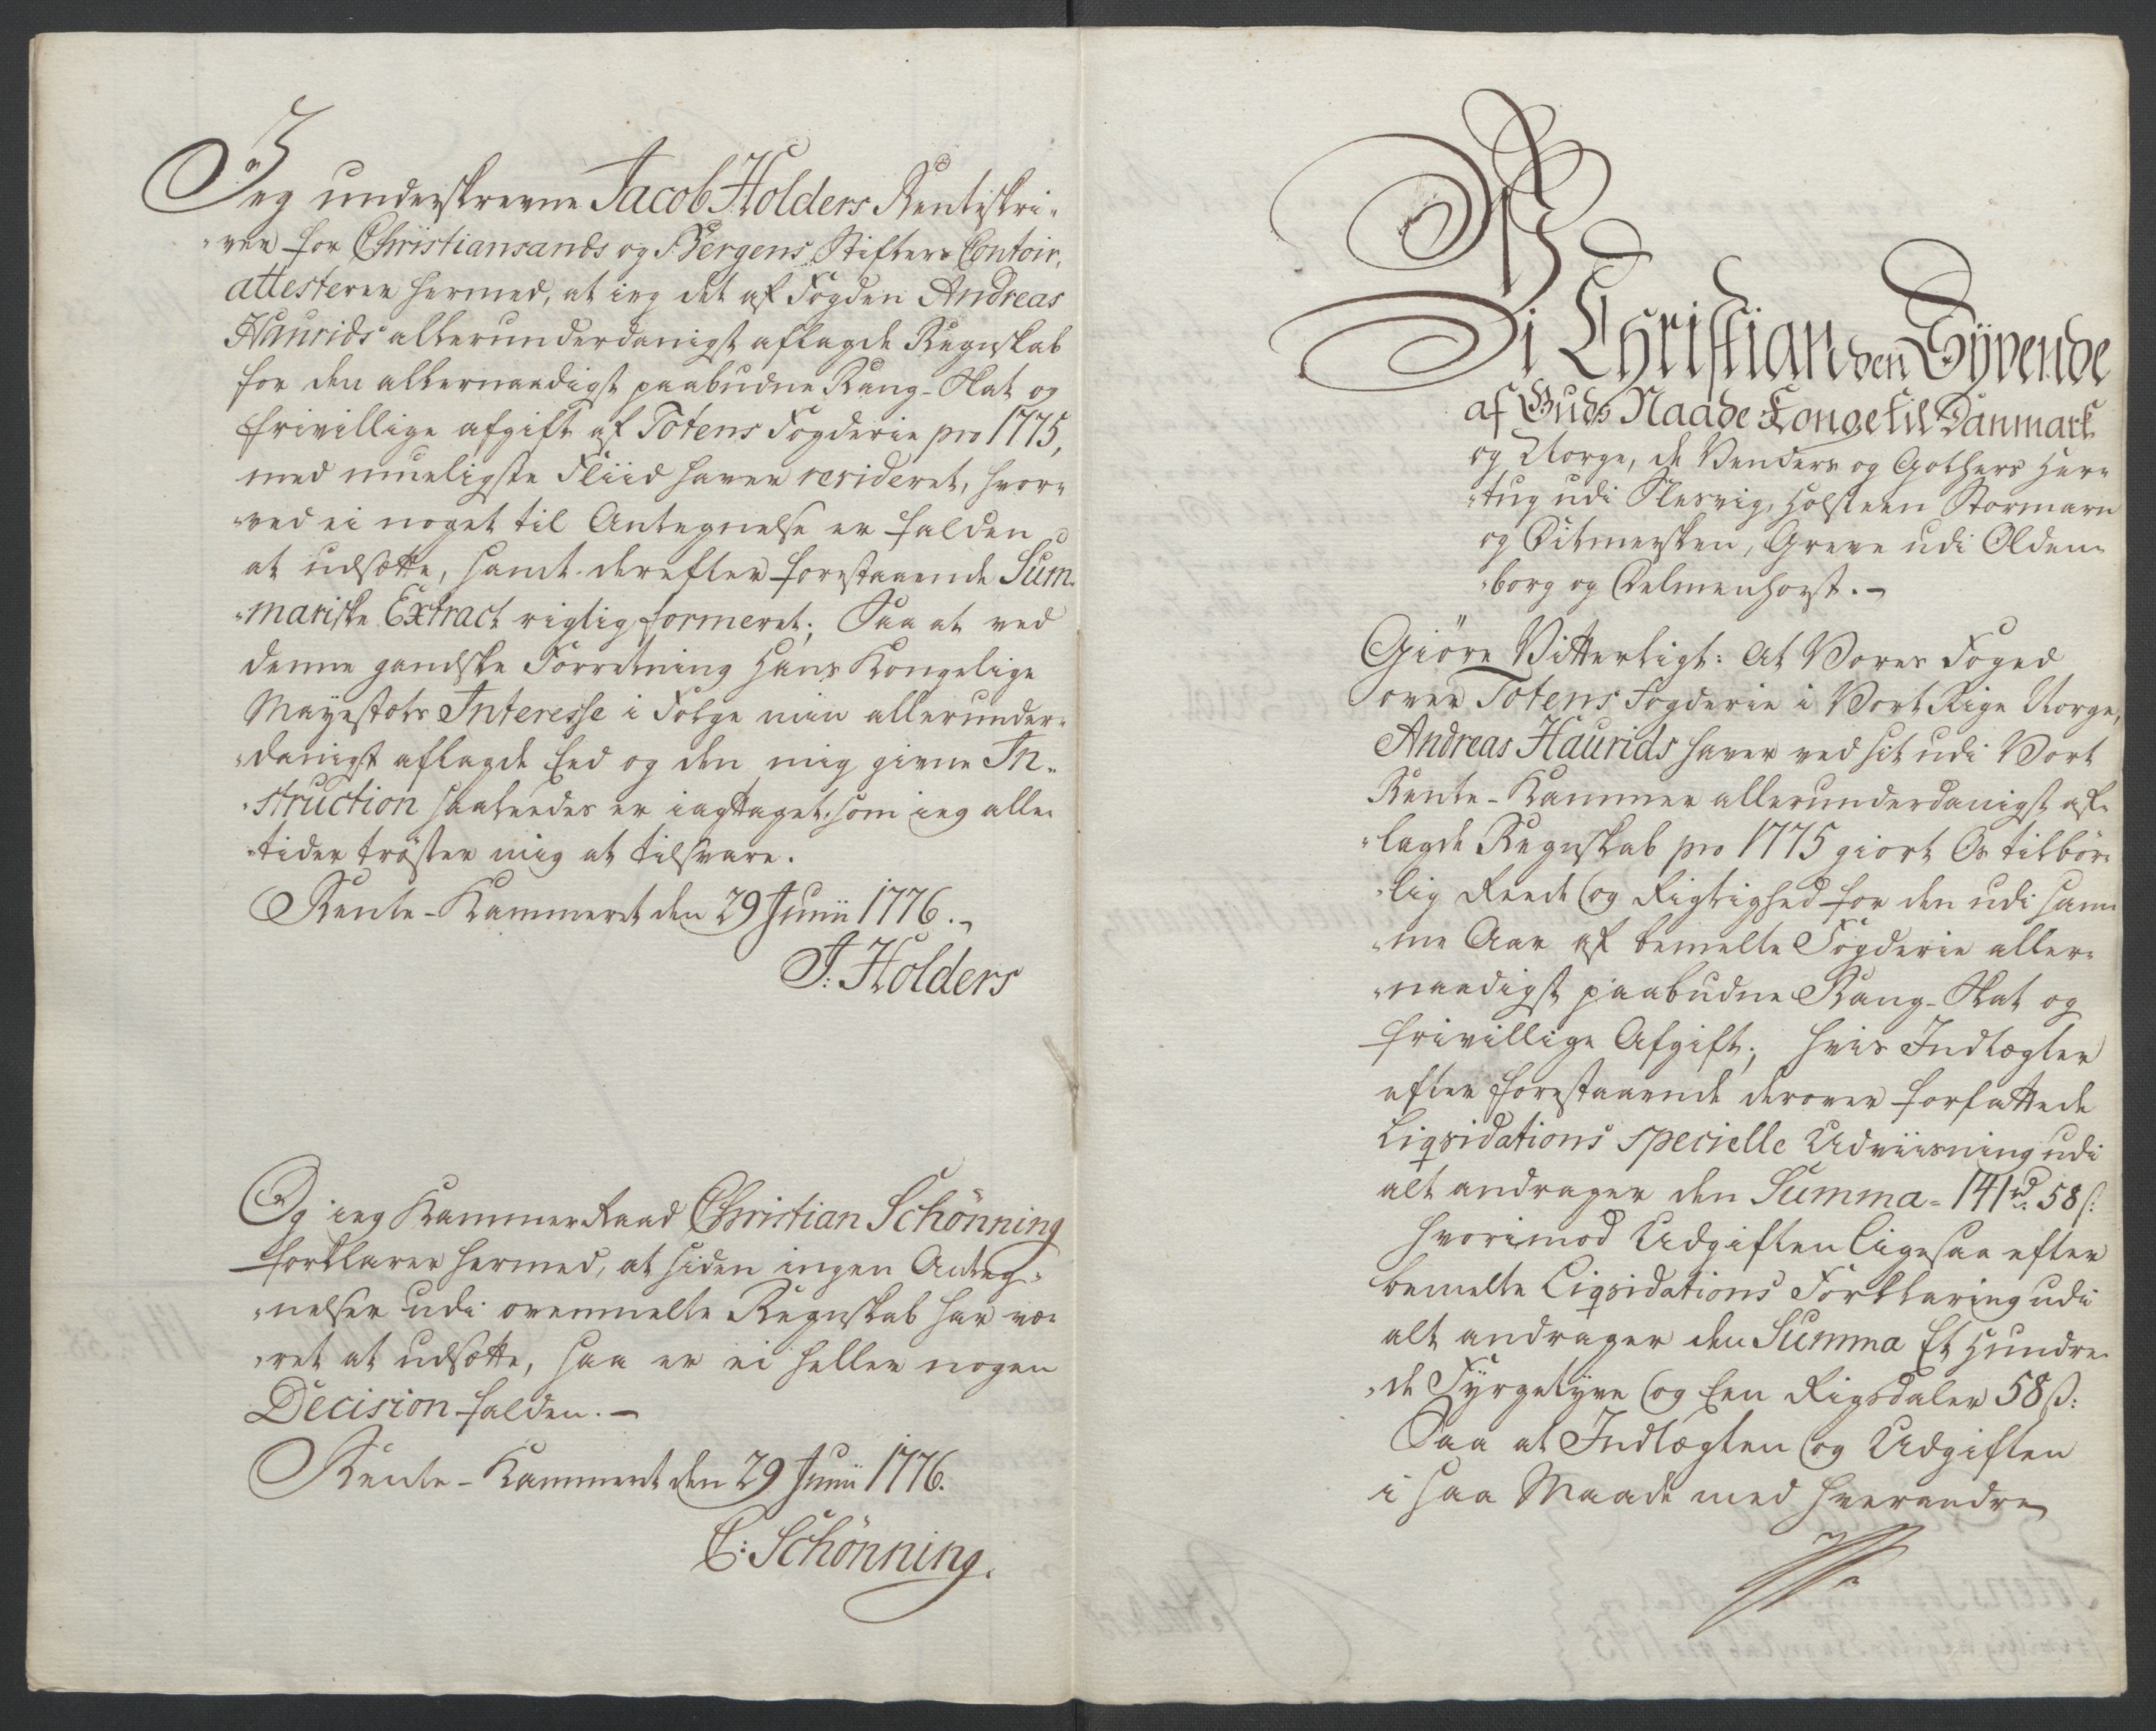 Jeg underskrevne Jacob Holders Renteskri-
-ver for Christiansands og Bergens Stifters Contoir,
attesterer hermed, at ieg det af Fogden Andreas
Haurids allerunderdanigst aflagde Regnskab
for den allernaadigst paabudne Rang-Skat og
frivillige afgift af Totens Fogderie pro 1775,
med mueligste Fliid haver revideret, hvor-
-ved ei noget til Antegnelse er falden
at udsætte, samt derefter forestaaende Sum-
-mariske Extract rigtig formeret; Saa at ved
denne gandske Forretning Hans Kongelige
Mayestæts Interesse i Følge min allerunder-
-danigst aflagde Eed og den mig givne In-
-struction saaledes er iagttaget, som ieg alle-
-tider trøster mig at tilsvare.
Rente-Kammeret den 29 Junii 1776.
J: Holders
Og ieg Kammer Raad Christian Schönning
forklarer hermed, at siden ingen Anteg-
-nelser udi ovenmelte Regnskab har væ-
-ret at udsætte, saa er ei heller nogen
Decision falden.
Rente-Kammeret den 29 Junii 1776.
C: Schönning.
Vi Christian den Syvende
af Guds Naade Konge til Danmark
og Norge, de Venders og Gothers Her-
-tug udi Slesvig, Holsteen Stormarn
og Ditmersken, Greve udi Olden-
-borg og Delmenhorst.
Giöre Vitterligt: At Vores Foged
over Totens Fogderie i Vort Rige Norge,
Andreas Haurids haver ved sit udi Vort
Rente-Kammer allerunderdanigst af-
-lagde Regnskab pro 1775 giort Os tilbör-
-lig Reede og Rigtighed for den udi sam-
-me Aar af bemelte Fogderie aller-
-naadigst paabudne Rang-Skat og
frivillige Afgift; hvis Indtægter
efter forestaaende derover forfattede
Liqvidations specielle Udviisning udi
alt andrager den Summa - 141 rd. 58 ß.
hvorimod Udgiften ligesaa efter
bemelte Liqvidations Forklaring udi
alt andrager den Summa Et Hundre-
-de Fyrgetyve og Een Rigsdaler 58 ß:
Saa at Indtægten og Udgiften
i saa Maade med hverandre